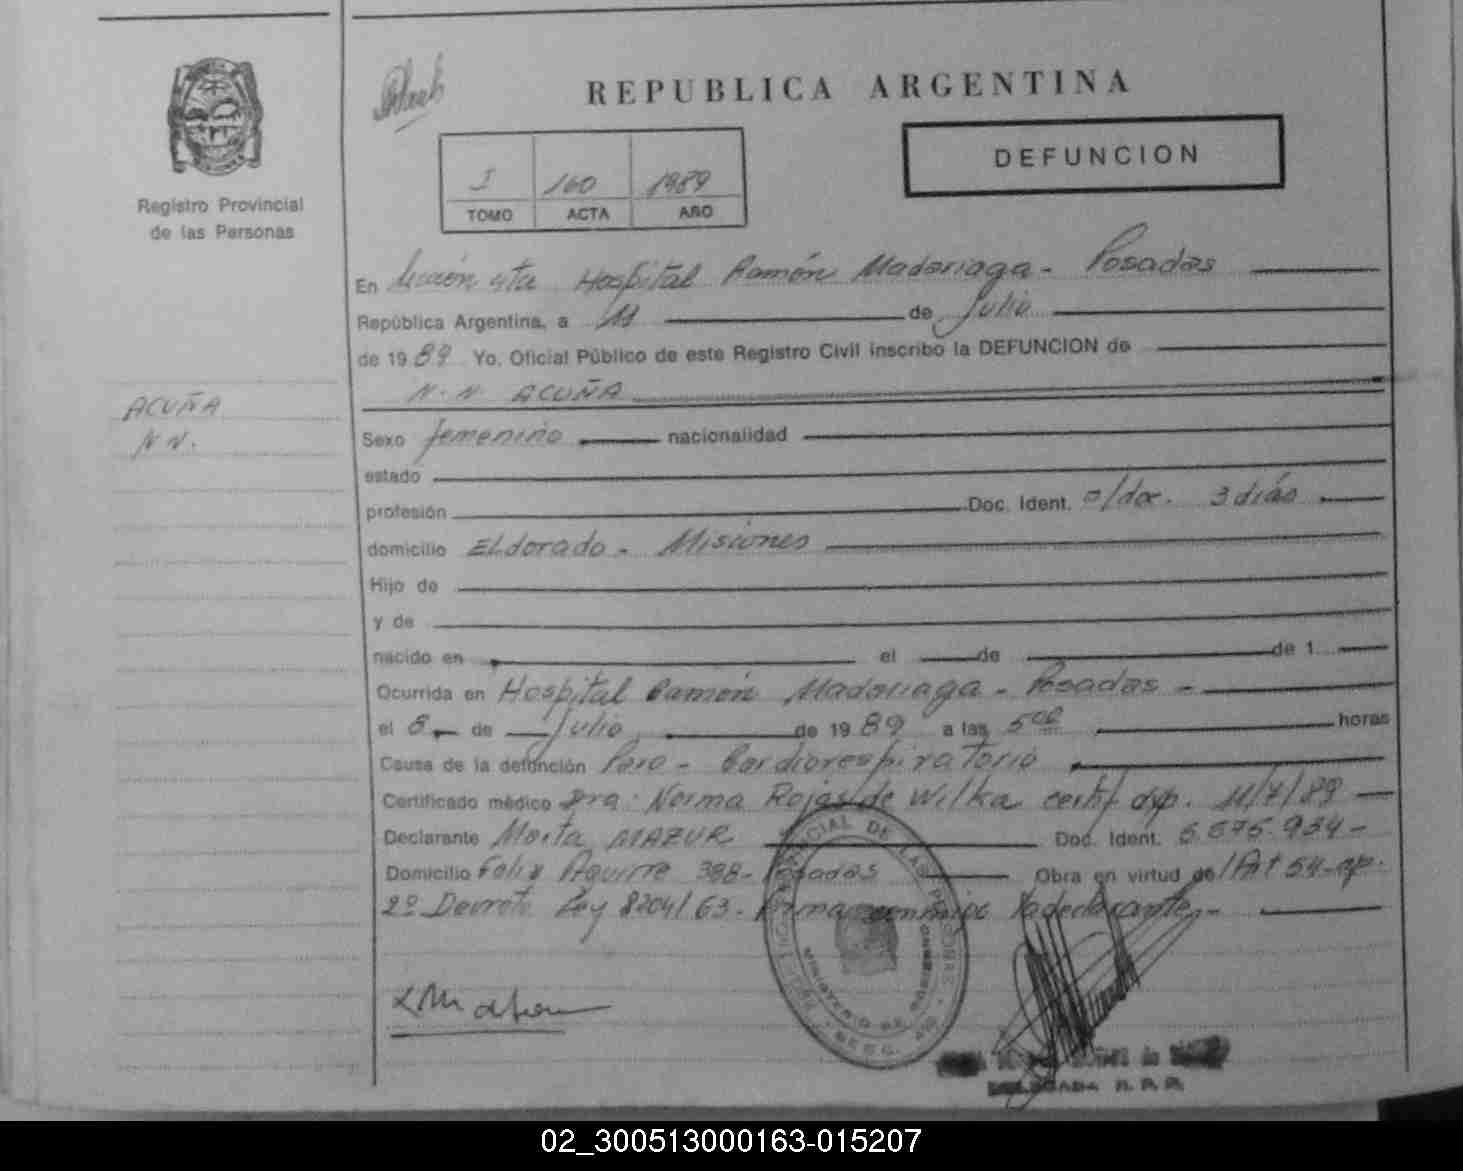 REPUBLICA ARGENTINA
DEFUNCION
I 160 1989
TOMO ACTA AÑO
Registro Provincial
de las Personas
En Sección 4ta Hospital Ramón Madariaga - Posadas
República Argentina, a 11 de Julio
de 1989 Yo, Oficial Público de este Registro Civil inscribo la DEFUNCION de
N.N ACUÑA
ACUÑA
N N.
Sexo femenino nacionalidad
estado
profesión Doc. Ident. s/doc. 3 días
domicilio Eldorado - Misiones
Hijo de
y de
nacido en el de de 1
Ocurrida en Hospital Ramón Madariaga - Posadas -
el 8 de Julio de 1989 a las 5 00 horas
Causa de la defunción Paro - Cardiorespiratorio
Certificado médico Dra. Norma Rojas de Wilka certif. dxp. 11/7/89
Declarante Marta MAZUR Doc. Ident. 5.675.934-
Domicilio Felix Aguirre 388- Posadas Obra en virtud de l'Art 54-ap.
2º Decreto Ley 8204/63- Firma conmigo la declarante-
MINISTERIO DE GOBIERNO
02_300513000163-015207